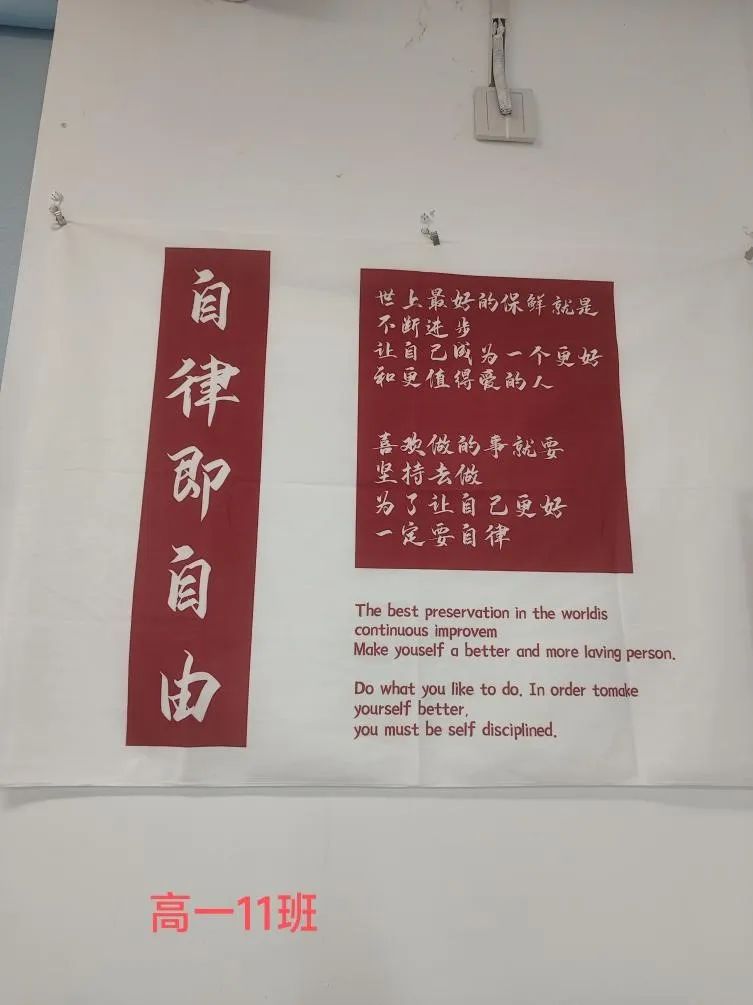 自律即自由
世上最好的保鲜就是
不断进步
让自己成为一个更好
和更值得爱的人
喜欢做的事就要
坚持去做
为了让自己更好
一定要自律
The best preservation in the worldis
continuous improvem
Make youself a better and more laving person.
Do what you like to do. In order tomake
yourself better,
you must be self disciplined.
高一11班